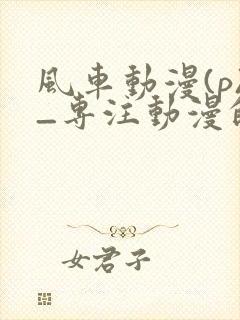 風車動漫(p
–專注動漫的
女君子